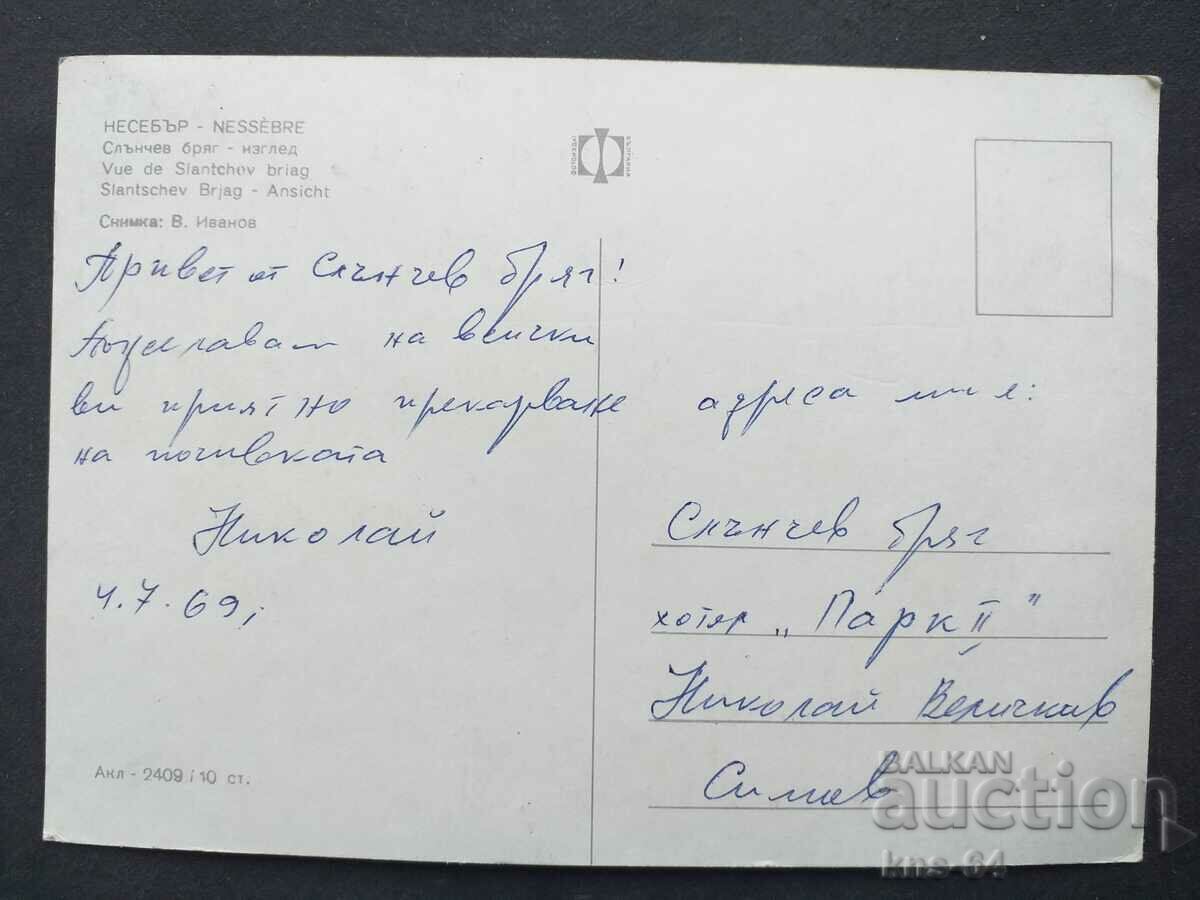 НЕСЕБЪР - NESSÈBRE
Слънчев бряг - изглед
Vue de Slantchov briag
Slantschev Brjag - Ansicht
Снимка: В. Иванов
ФОТОИЗДАТ
БЪЛГАРИЯ
Привет от Слънчев бряг!
на всички
ви приятно прекарване
на почивката
Николай
4.7.69
Акл - 2409 / 10 ст.
адреса ми е:
Слънчев бряг
хотел „Парк II"
Николай Величков
Симов
BALKAN
auction
kns-64